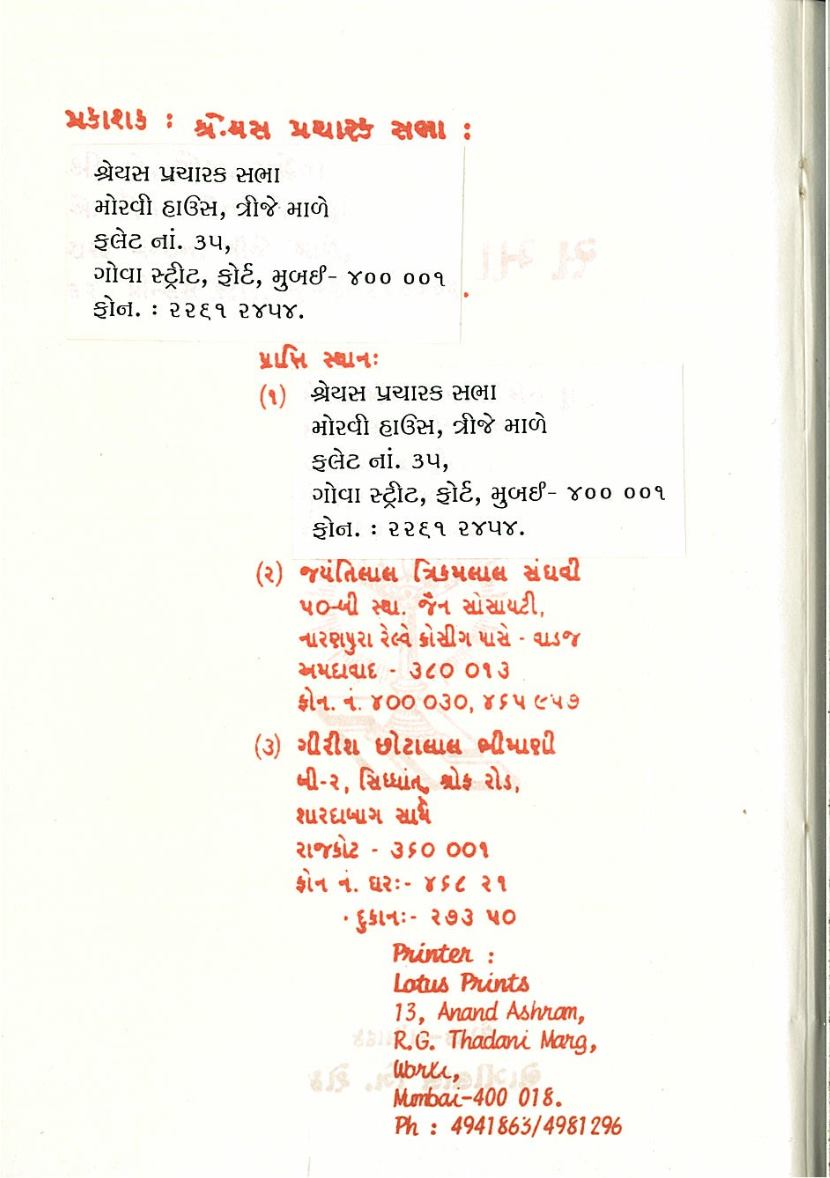 પ્રકાશક : શ્રેયસ પ્રચારક સભા :
શ્રેયસ પ્રચારક સભા
મોરવી હાઉસ, ત્રીજે માળે
ફલેટ નાં. ૩૫,
ગોવા સ્ટ્રીટ, ફોર્ટ, મુબઈ- ૪૦૦ ૦૦૧
ફોન. : ૨૨૬૧ ૨૪૫૪.
પ્રાપ્તિ સ્થાનઃ
(૧) શ્રેયસ પ્રચારક સભા
મોરવી હાઉસ, ત્રીજે માળે
ફલેટ નાં. ૩૫,
ગોવા સ્ટ્રીટ, ફોર્ટ, મુબઈ- ૪૦૦ ૦૦૧
ફોન. : ૨૨૬૧ ૨૪૫૪.
(૨) જયંતિલાલ ત્રિકમલાલ સંઘવી
૫૦-બી સ્થા. જૈન સોસાયટી,
નારણપુરા રેલ્વે ક્રોસીગ પાસે - વાડજ
અમદાવાદ - ૩૮૦ ૦૧૩
ફોન. નં. ૪૦૦ ૦૩૦, ૪૬૫ ૯૫૭
(૩) ગીરીશ છોટાલાલ ભીમાણી
બી-૨, સિધ્ધાંત, શ્રોફ રોડ,
શારદાબાગ સામે
રાજકોટ - ૩૬૦ ૦૦૧
ફોન નં. ઘરઃ- ૪૬૮ ૨૧
દુકાનઃ- ૨૭૩ ૫૦
Printer :
Lotus Prints
13, Anand Ashram,
R.G. Thadani Marg,
Worli,
Mumbai-400 018.
Ph : 4941863/4981296